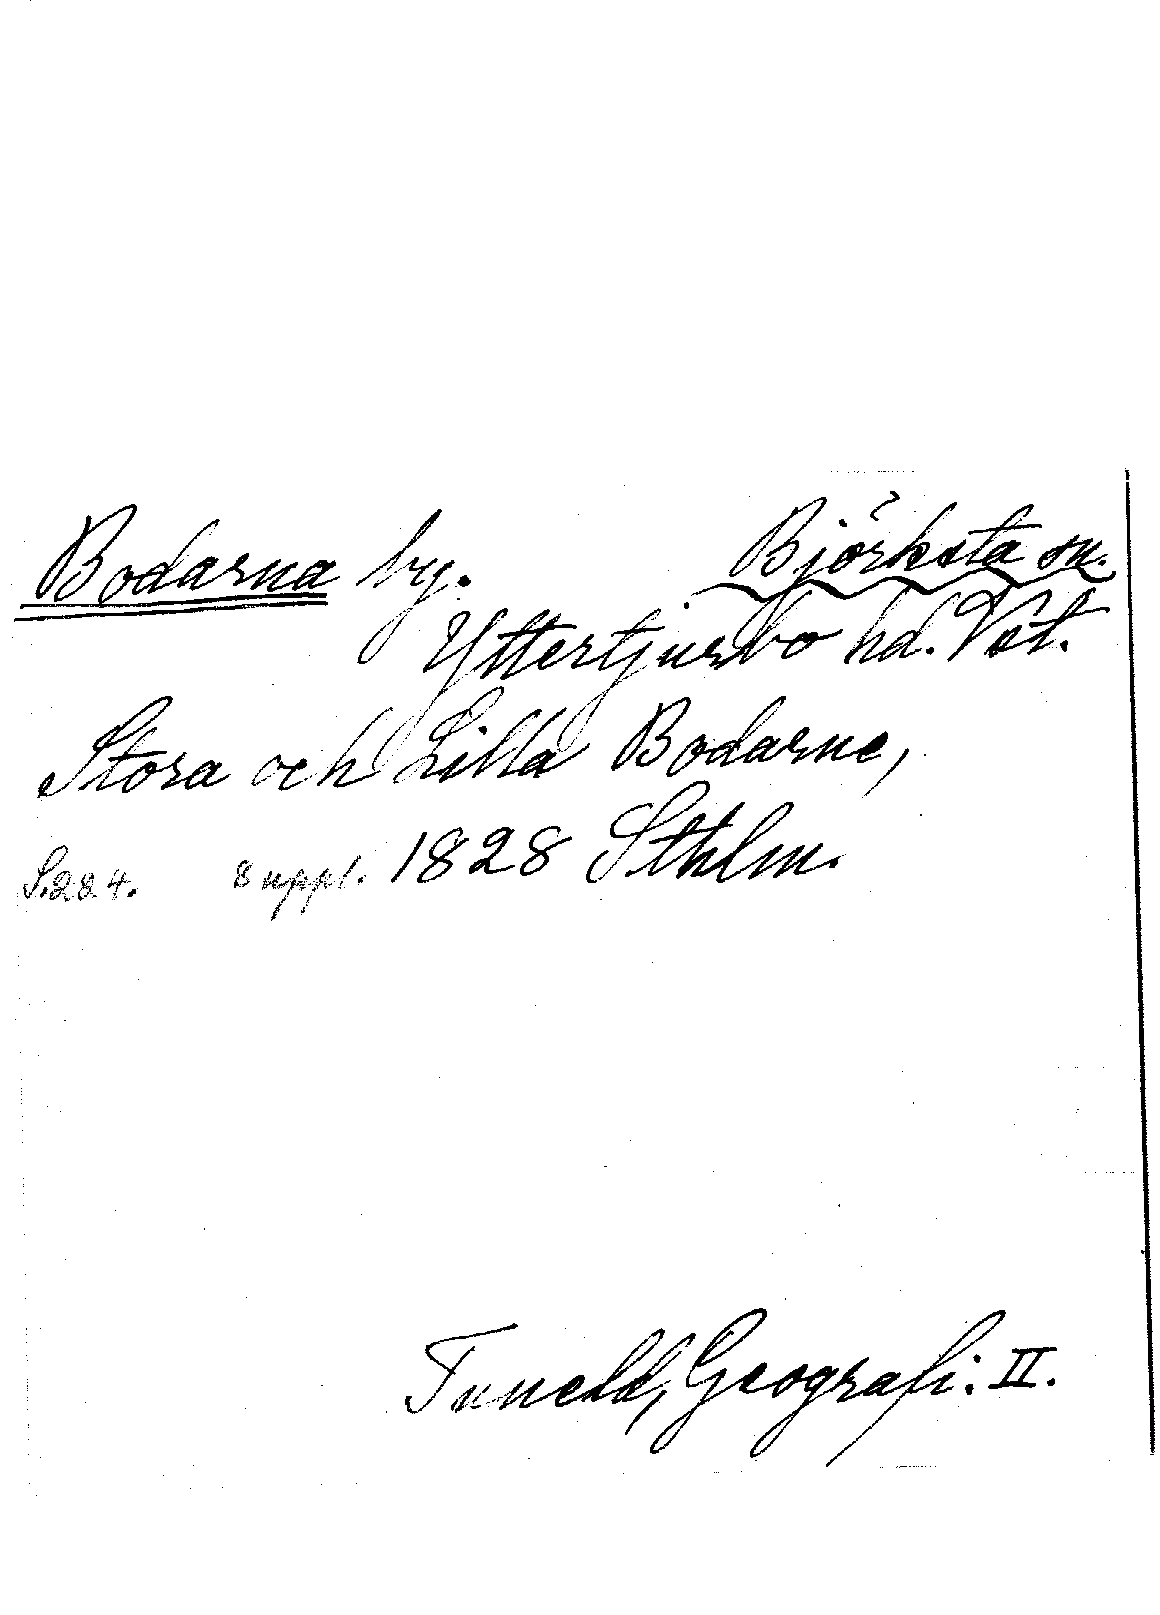 Bodarna by. Björksta sn.
Yttertjurbo hd. Vst.
Stora och Lilla Bodarne,
S. 284. 8 uppl. 1828 Sthlm.
Tuneld, Geografi. II.